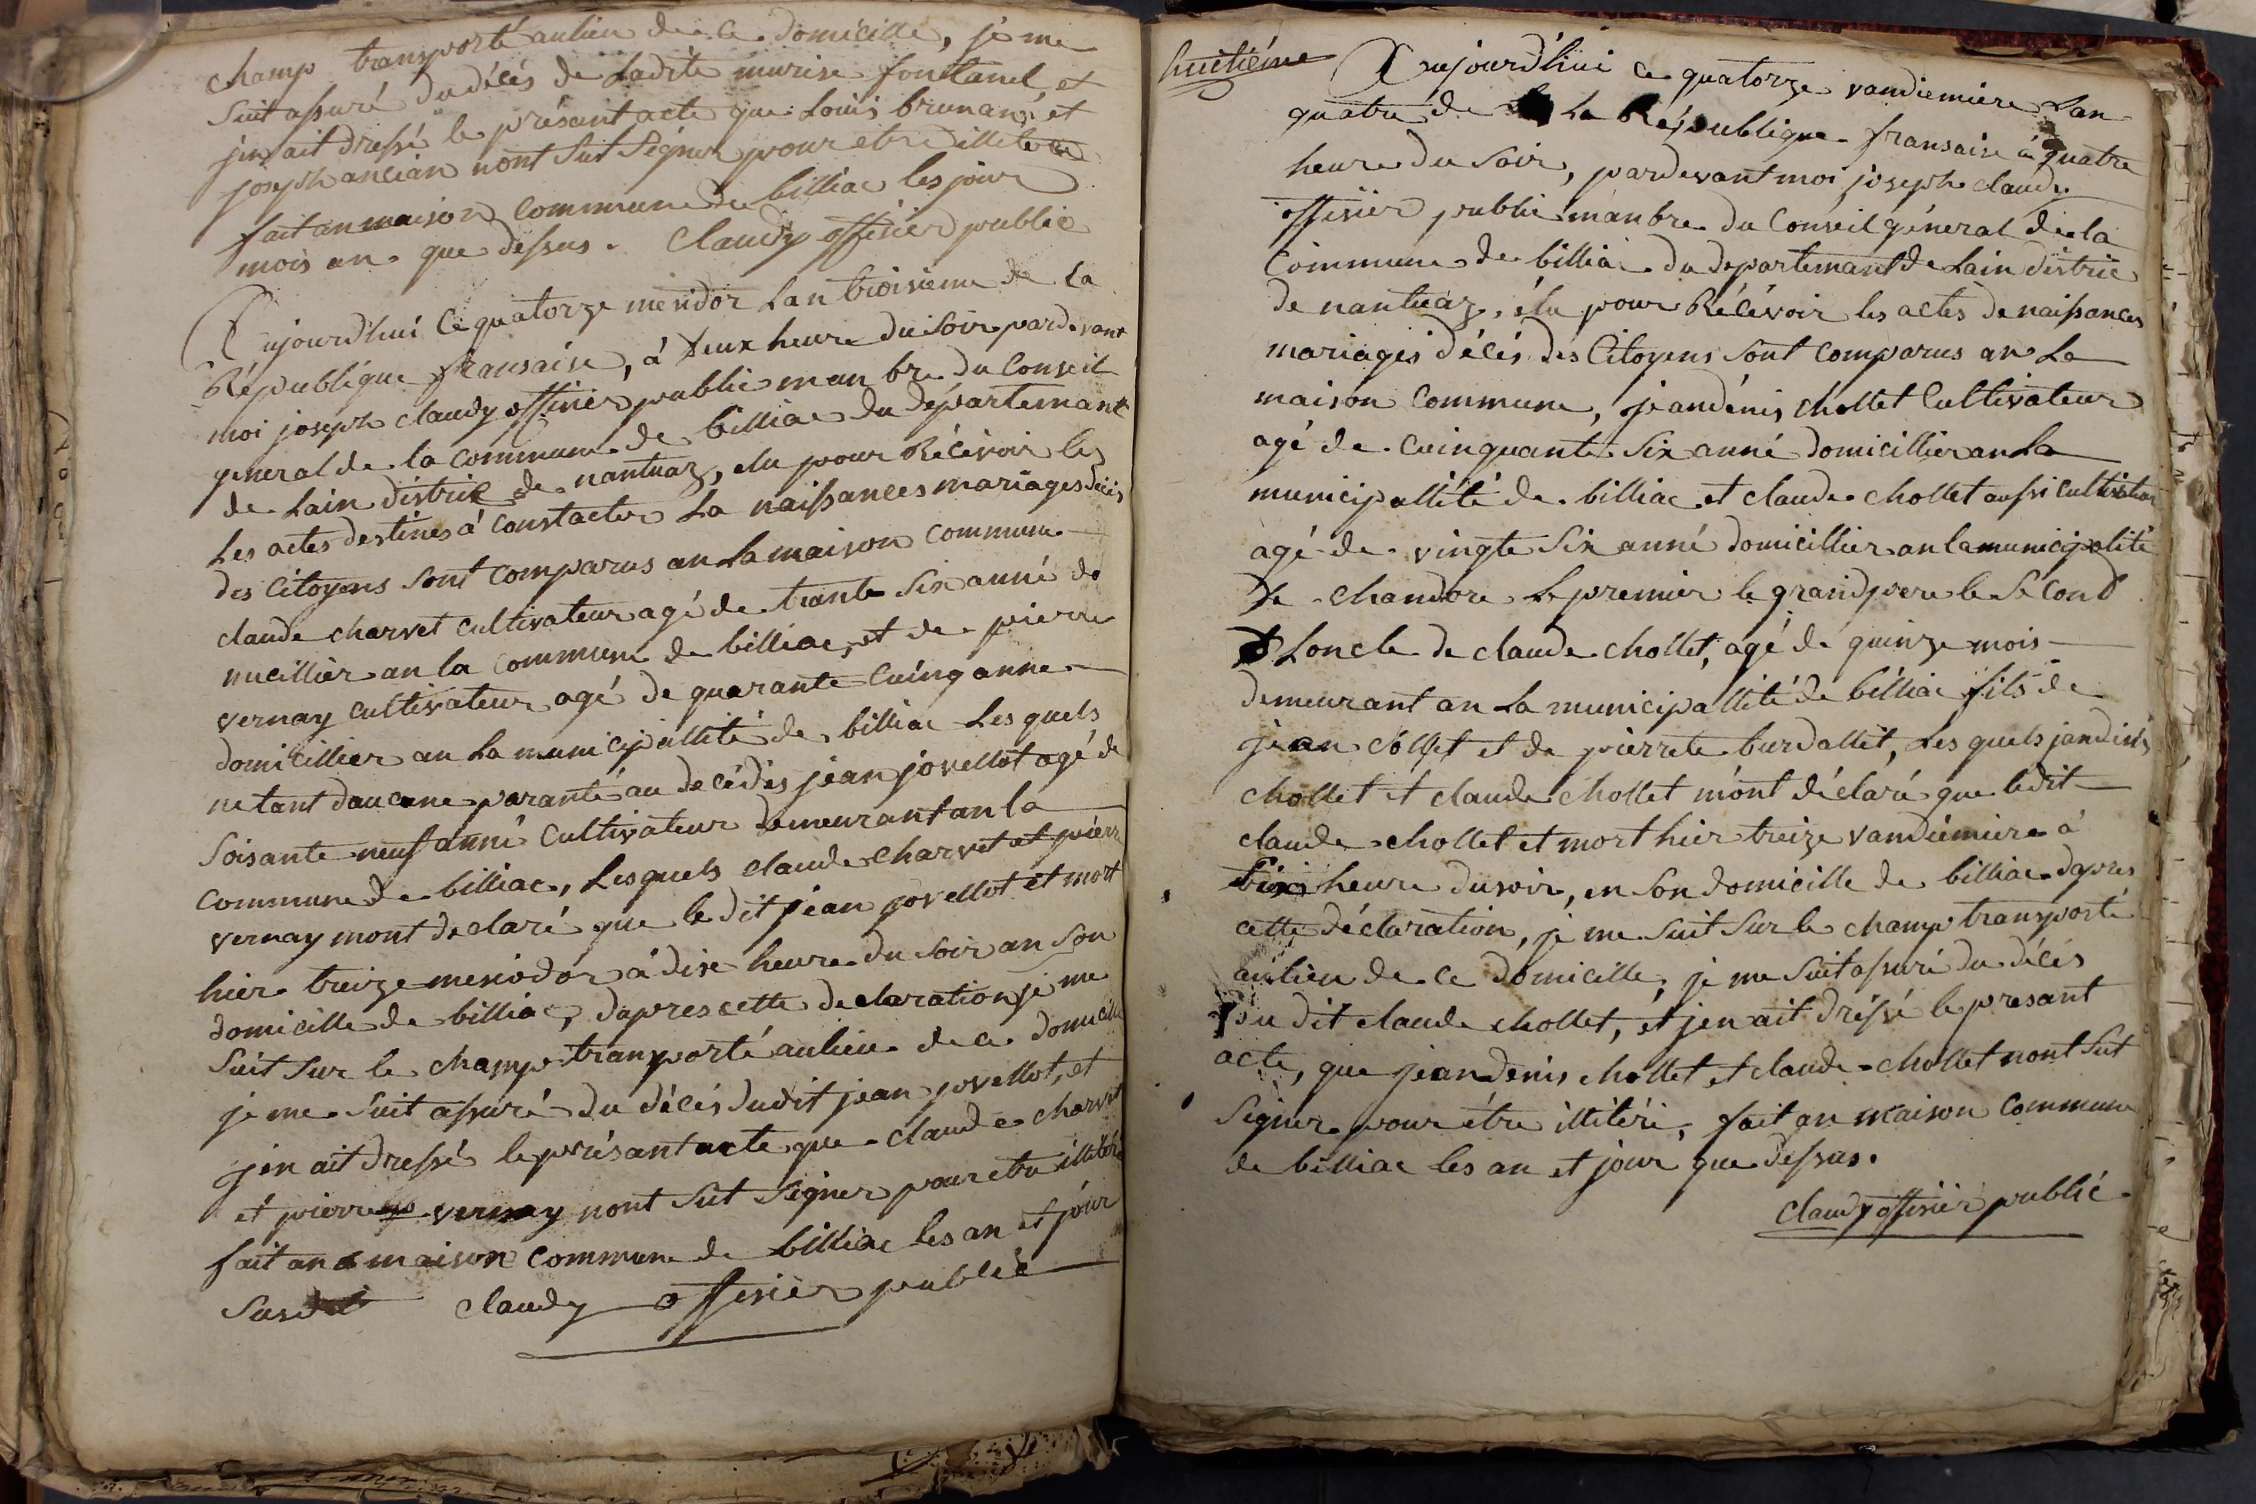 champ transporté aulieu de ce domicille, je me
suit assuré du déces de Ladite murise fontanel, et
jen ait dressé le présant acte que Louis brunan, et
joseph ancian nont sut Signer pour etre illiteré
fait an maison commune de billiac les jour
mois an que dessus. Claudy offisier public
Aujourd'hui Ce quatorze meridor Lan troisieme de La
République fransaise, à deux heure du soir pardevant
moi joseph claudy offisier public manbre du Conseil
general de la commune de billiac du departemant
de Lain distric de nantuaz, elu pour Récévoir les
Les actes destinés à constacter La naissances mariages décès
des Citoyens sont comparus an La maison commune
claude charvet cultivateur agé de trante Six anné do
micillier an la commune de billiac, et de pierre
vernay cultivateur agé de quarante cuinq anne
domicillier an La municipallité de billiac Les quels
netant daucune paranté au decédés jean jovellot agé de
Soisante neuf anné cultivateur demeurant an la
commune de billiac, Lesquels claude charvet et pierre
vernay mont declaré que le dit jean jovellot et mort
hier treize meridor à dix heure du soir an son
domicille de billiac, dapres cette declaration je me
suit sur le champ transporté aulieu de ce domicille
je me suit assuré du déces dudit jean jovellot, et
jen ait dressé le présant acte que claude charvet
et pierre vernay nont sut signer pour etre illiteré
fait an maison commune de billiac les an et jour
Susdit claudy offisier public
huitiéme Aujourd'hui ce quatorze vandiemiere Lan
quatre de La République fransaise à quatre
heure du soir, pardevant moi joseph claudy
offisier public manbre du Conseil géneral de la
Commune de billiac du departemant de Lain distric
de nantuaz, élu pour Récévoir les actes de naissances
mariages déces des Citoyens sont comparus an La
maison commune, jeandénis chollet Cultivateur
agé de cuinquante Six anné domicillier an La
municipallité de billiac et claude chollet aussi cultivateur
agé de vingte Six anné domicillier an la municipalité
de chandore Le premier le grandpere le Second
Loncle de claude chollet, agé de quinze mois
demeurant an La municipallité de billiac fils de
jean collet et de pierrete burdallet, Les quels jandinis
chollet et claude chollet mónt déclaré que ledit
claude chollet et mort hier treize vandiemiere à
Six heure du soir, en son domicille de billiac dapres
cette déclaration, je me suit sur le champ transporté
aulieu de ce domicille, je me suit assuré du décès
du dit claude chollet, et jen ait dréssé le presant
acte, que jeandenis chollet et claude chollet nont sut
Signer pour étre illitéré, fait an maison commune
de billiac les an et jour que dessus.
Claudy offisier public